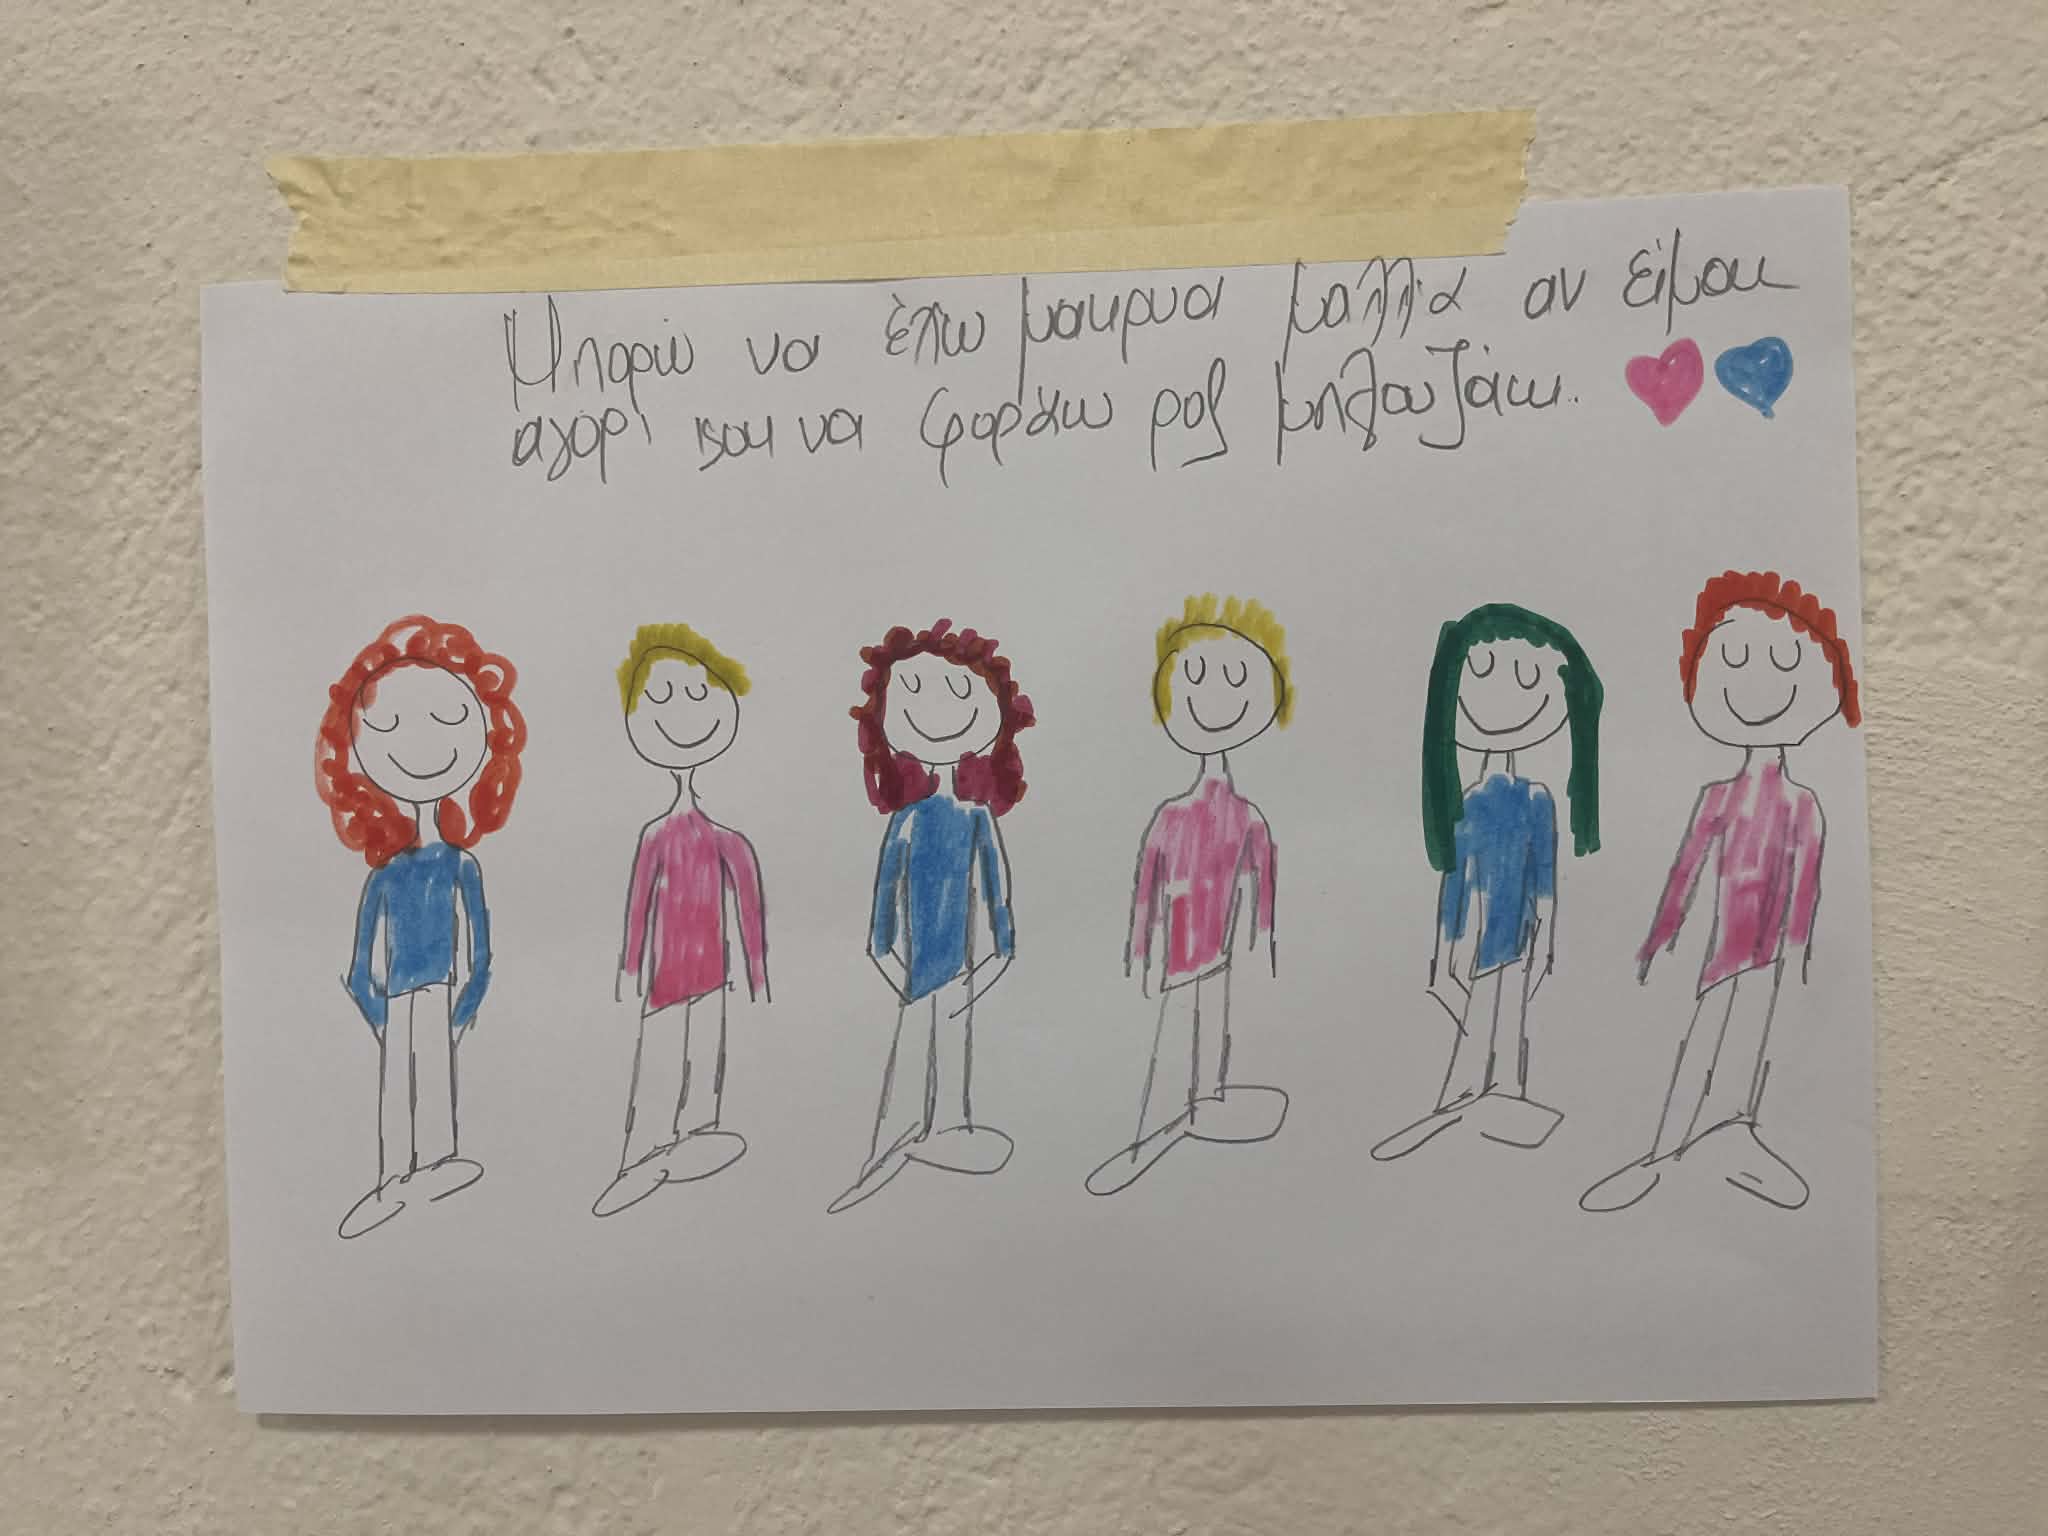 Μπορώ να έχω μακρυά μαλλιά αν είμαι
αγόρι και να φοράω ροζ μπλουζάκι.